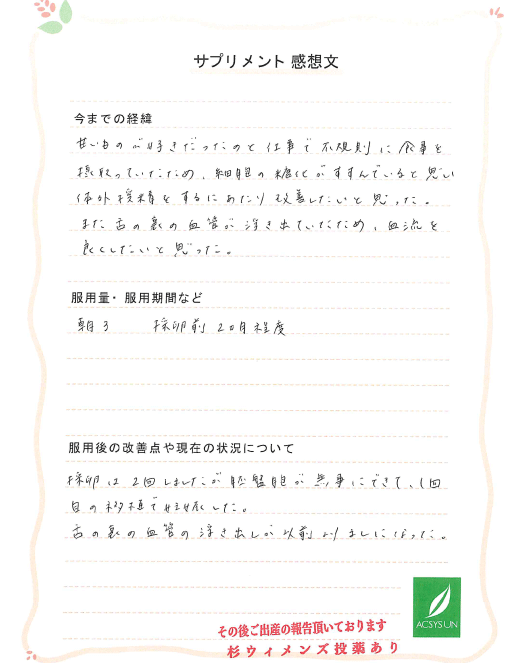 サプリメント 感想文
今までの経緯
甘いものが好きだったのと仕事で不規則に食事を
摂取っていたため、細胞の糖化がすすんでいると思い
体外授精をするにあたり改善したいと思った。
また舌の裏の血管が浮き出ていたため、血流を
良くしたいと思った。
服用量・服用期間など
朝3 採卵前 2ヶ月程度
服用後の改善点や現在の状況について
採卵は2回しましたが胚盤胞が無事にできて、1回
目の移植で妊娠した。
舌の裏の血管の浮き出しが以前よりましになった。
ACSYSUN
その後ご出産の報告頂いております
杉ウィメンズ投薬あり